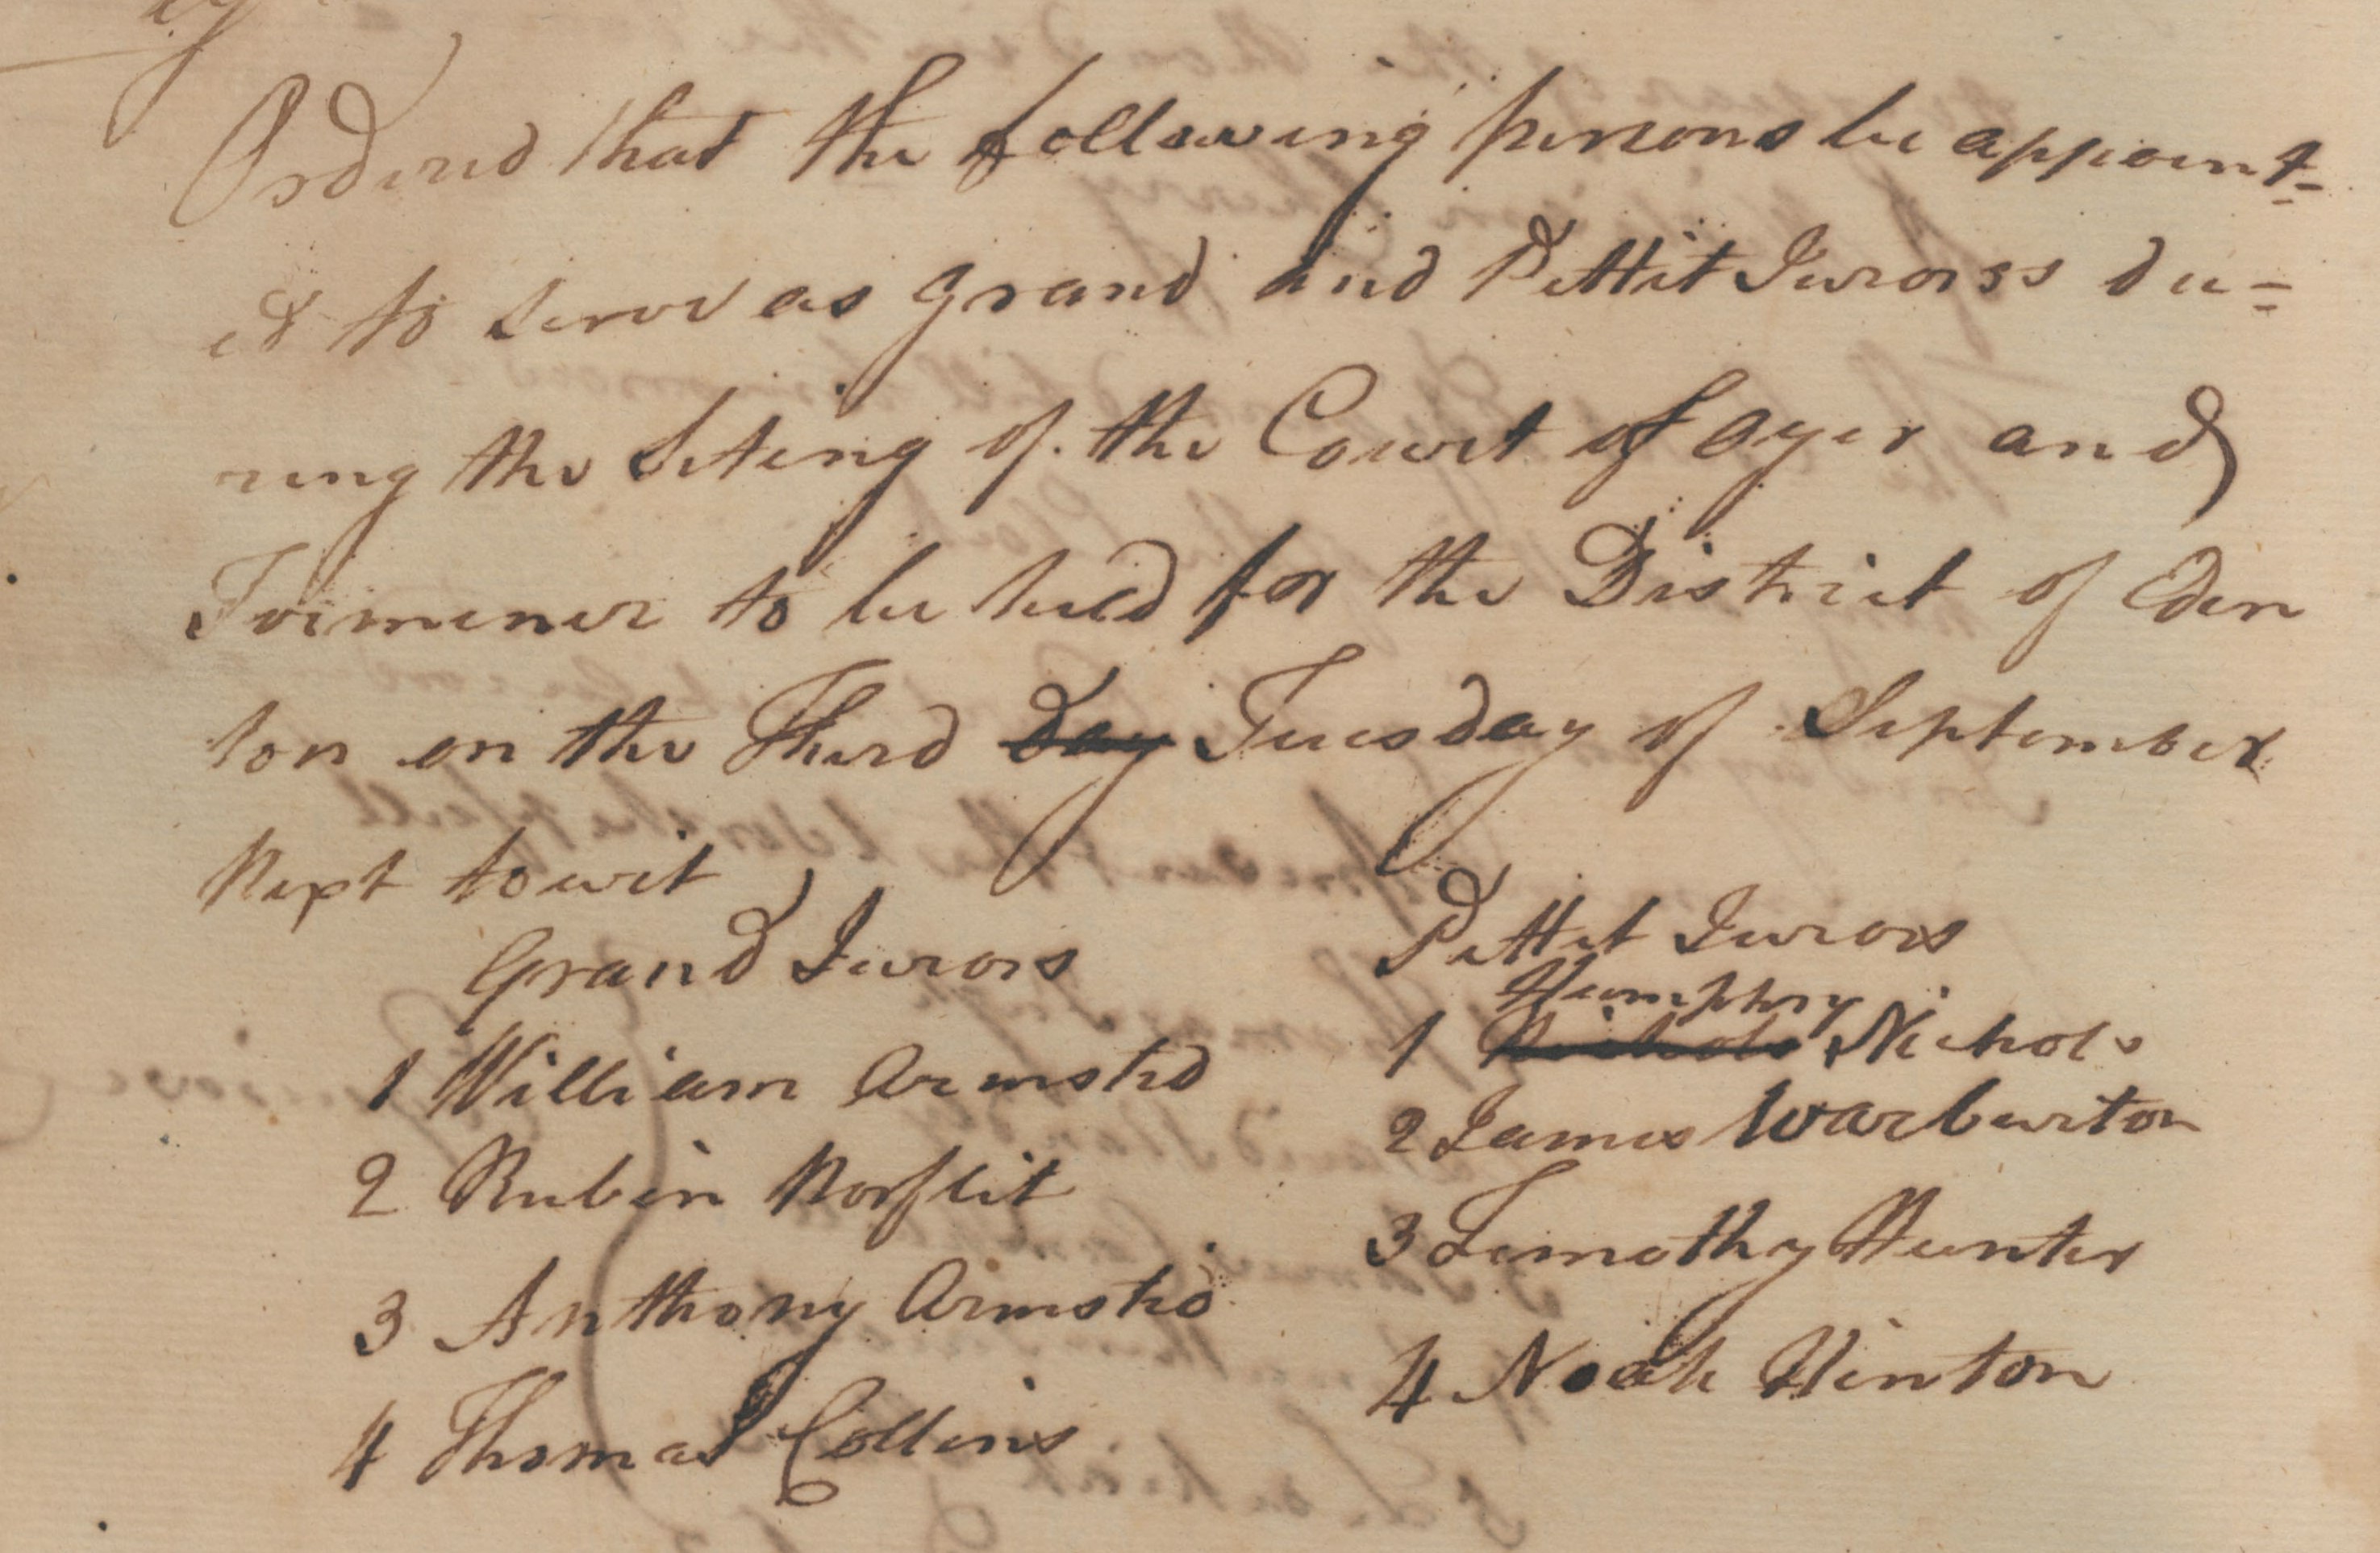 Ordered that the following persons be appoint=
ed to serve as grand and Pettit Jurors du=
ring the Siting of the Court of Oyer and
Torminer to be held for the District of Eden
ton on the Third Day Tuesday of September
Next towit
Grand Jurors
1 William Armstrd
2 Rubin Norflit
3 Anthony Armstrd
4 Thomas Collins
Pettit Jurors
Humphry
1 Nichols Nichols
2 James Warburton
3 Timothy Hunter
4 Noah Hinton